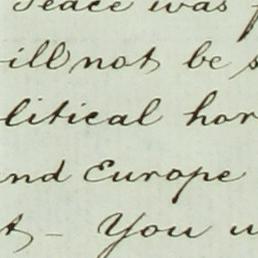 Peace was
ill not be
litical hor
nd Europe
t – You